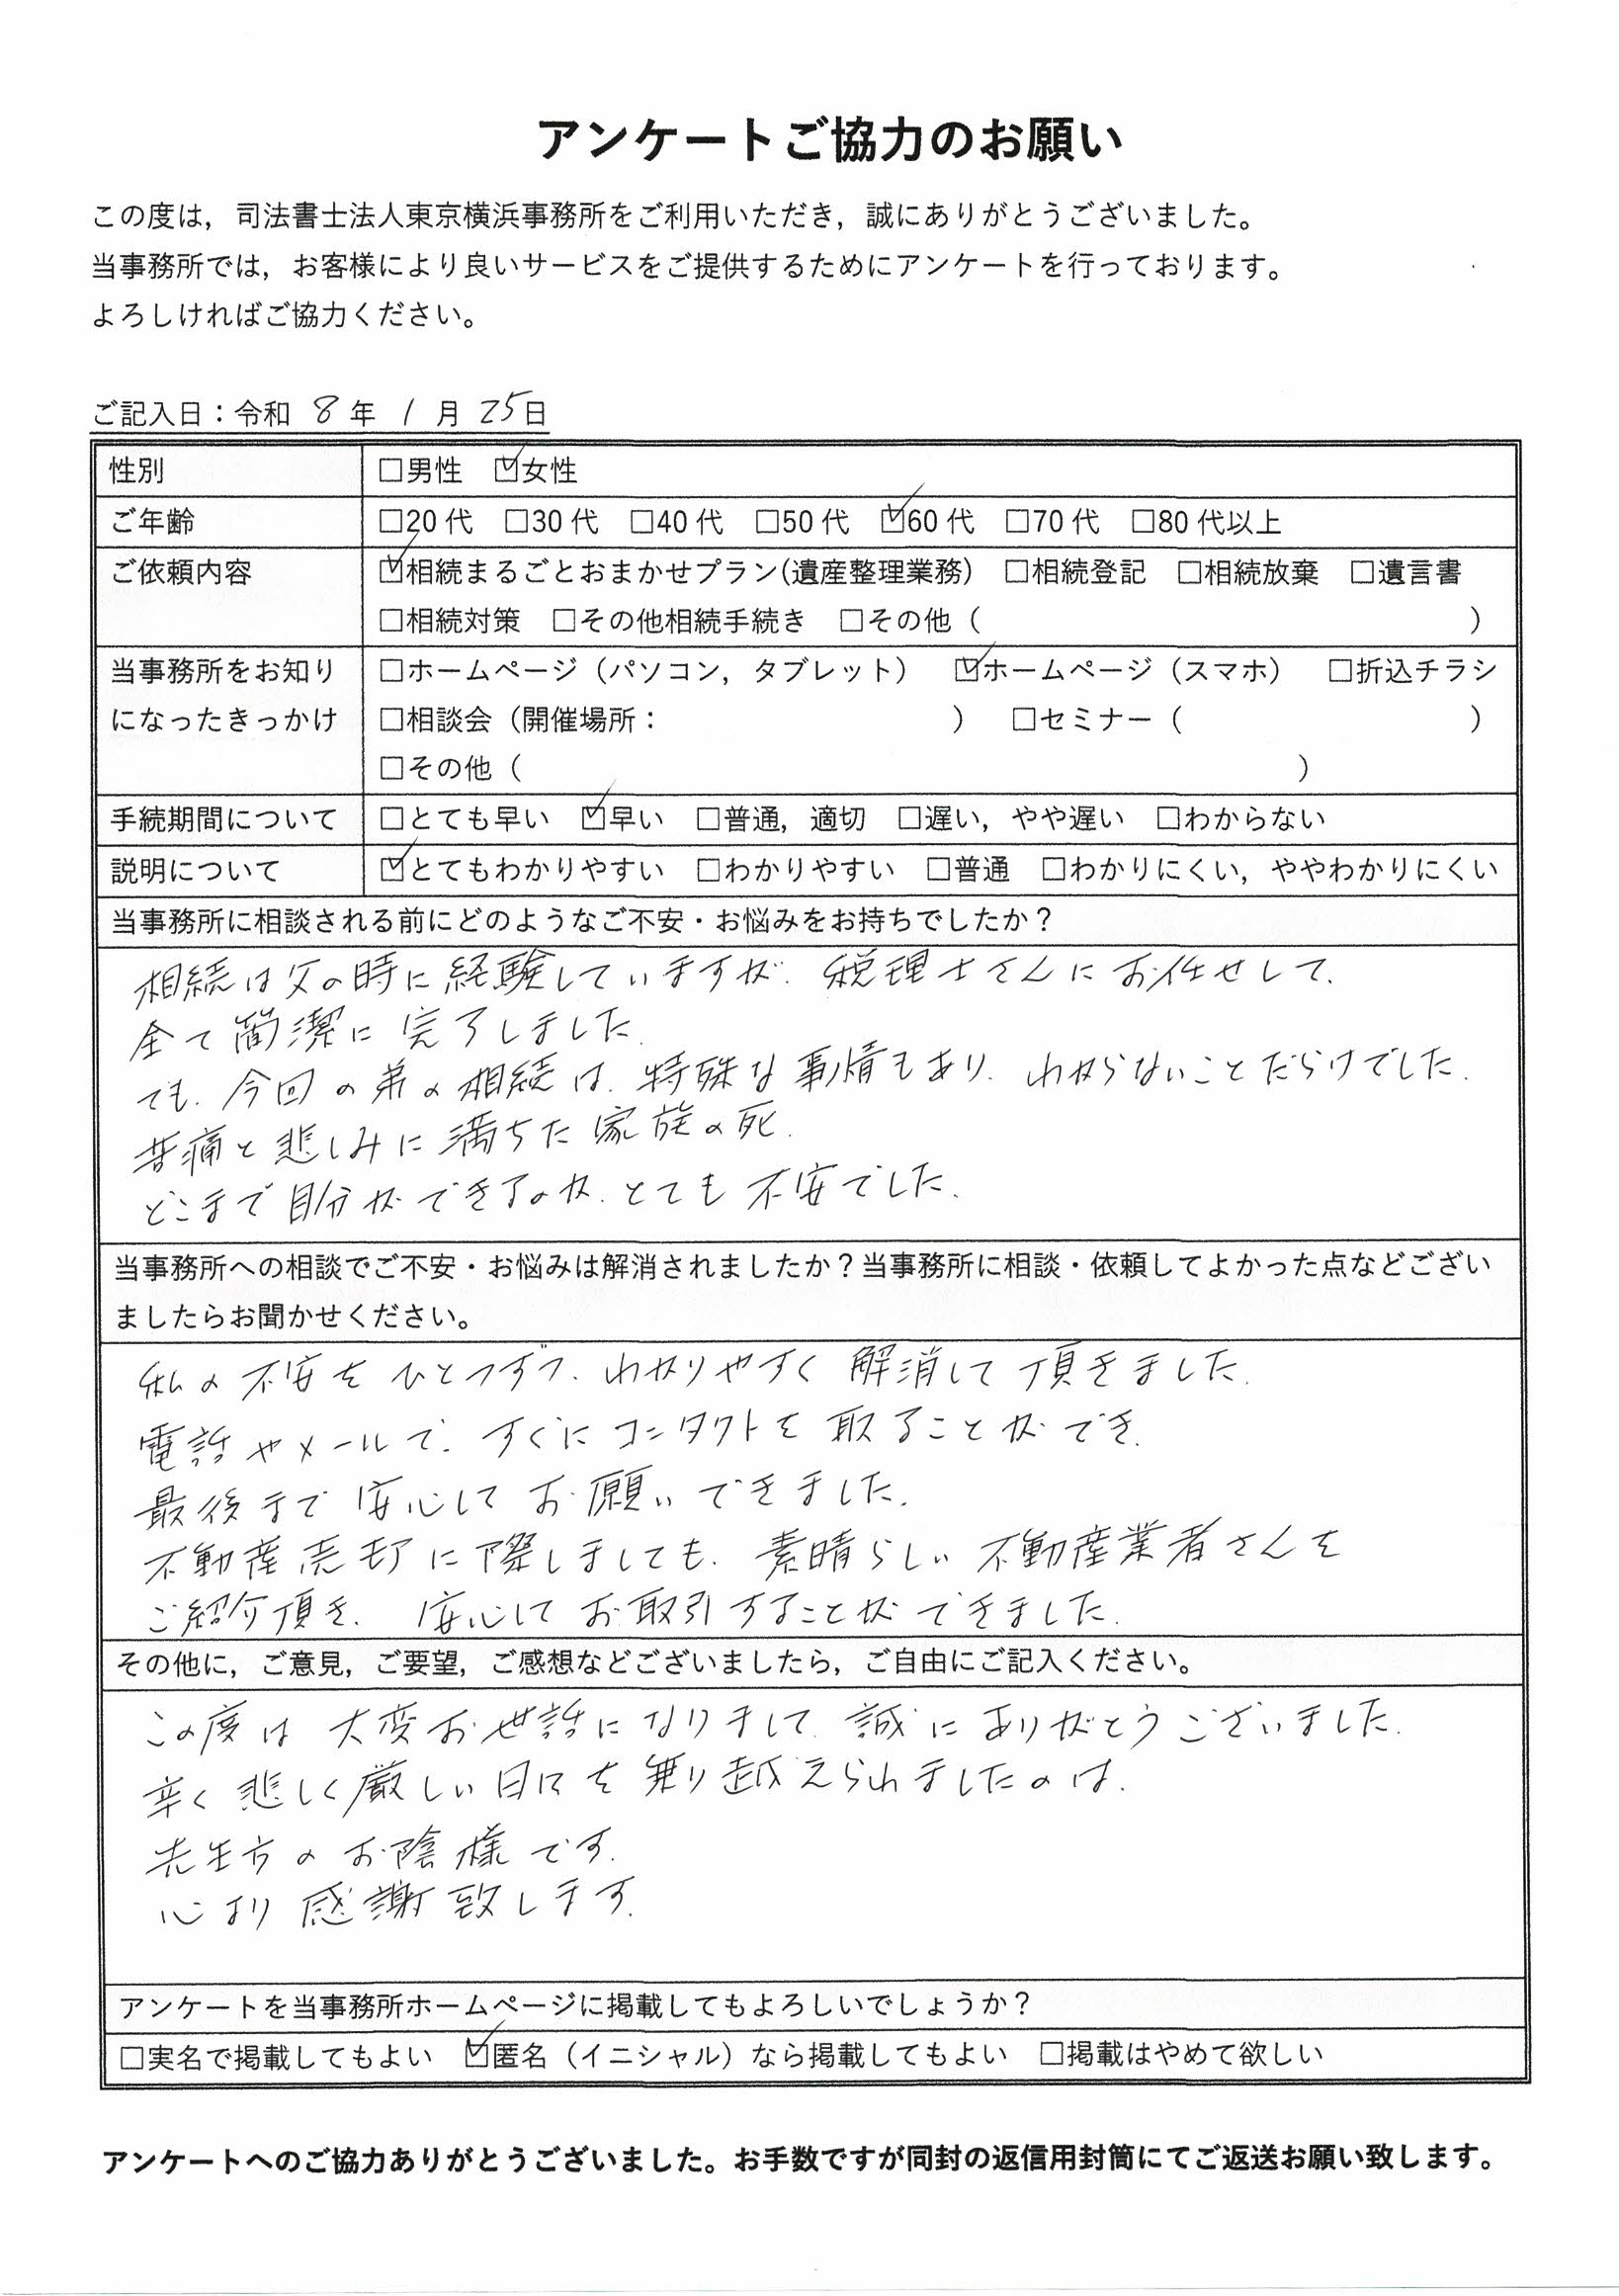 アンケートご協力のお願い
この度は，司法書士法人東京横浜事務所をご利用いただき，誠にありがとうございました。
当事務所では，お客様により良いサービスをご提供するためにアンケートを行っております。
よろしければご協力ください。
ご記入日：令和 8 年 1 月 25日
性別 □男性 ☑女性
ご年齢 □20代 □30代 □40代 □50代 ☑60代 □70代 □80代以上
ご依頼内容 ☑相続まるごとおまかせプラン(遺産整理業務) □相続登記 □相続放棄 □遺言書
□相続対策 □その他相続手続き □その他（ ）
当事務所をお知り □ホームページ（パソコン，タブレット） ☑ホームページ（スマホ） □折込チラシ
になったきっかけ □相談会（開催場所： ） □セミナー（ ）
□その他（ ）
手続期間について □とても早い ☑早い □普通，適切 □遅い，やや遅い □わからない
説明について ☑とてもわかりやすい □わかりやすい □普通 □わかりにくい，ややわかりにくい
当事務所に相談される前にどのようなご不安・お悩みをお持ちでしたか？
相続は父の時に経験していますが、税理士さんにお任せして、
全て簡潔に完了しました。
でも、今回の弟の相続は、特殊な事情もあり、わからないことだらけでした。
苦痛と悲しみに満ちた家族の死、
どこまで自分ができるのか、とても不安でした。
当事務所への相談でご不安・お悩みは解消されましたか？当事務所に相談・依頼してよかった点などござい
ましたらお聞かせください。
私の不安をひとつずつ、わかりやすく解消して頂きました。
電話やメールで、すぐにコンタクトを取ることができ、
最後まで安心してお願いできました。
不動産売却に際しましても、素晴らしい不動産業者さんを
ご紹介頂き、安心してお取引することができました。
その他に，ご意見，ご要望，ご感想などございましたら，ご自由にご記入ください。
この度は大変お世話になりまして、誠にありがとうございました。
辛く悲しく厳しい日々を乗り越えられましたのは、
先生方のお陰様です。
心より感謝致します。
アンケートを当事務所ホームページに掲載してもよろしいでしょうか？
□実名で掲載してもよい ☑匿名（イニシャル）なら掲載してもよい □掲載はやめて欲しい
アンケートへのご協力ありがとうございました。お手数ですが同封の返信用封筒にてご返送お願い致します。